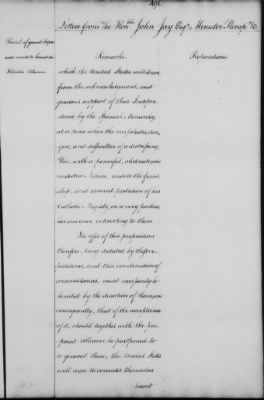 401
Letters from the Honble John Jay Esqr. Minister Plenipo. &c.
Remarks
Propositions
which the United States will draw
from the acknowledgment, and
generous support of their Indepen
dence by the Spanish Monarchy
at a time when the
and difficulties of a distressing
War, with a powerful, obstinate and
vindictive Nation, renders the friend
ship and avowed Protection of his
Catholic Majesty, in a very particu
lar manner interesting to them
The offer of this proposition
therefore being dictated by these
and this combination of
circumstances, must necessarily be
limited by the duration of them, and
consequently, that if the acceptance
of it, should together with the pro
posed alliance be postponed to
a general Peace, the United States
will cease to consider themselves
bound